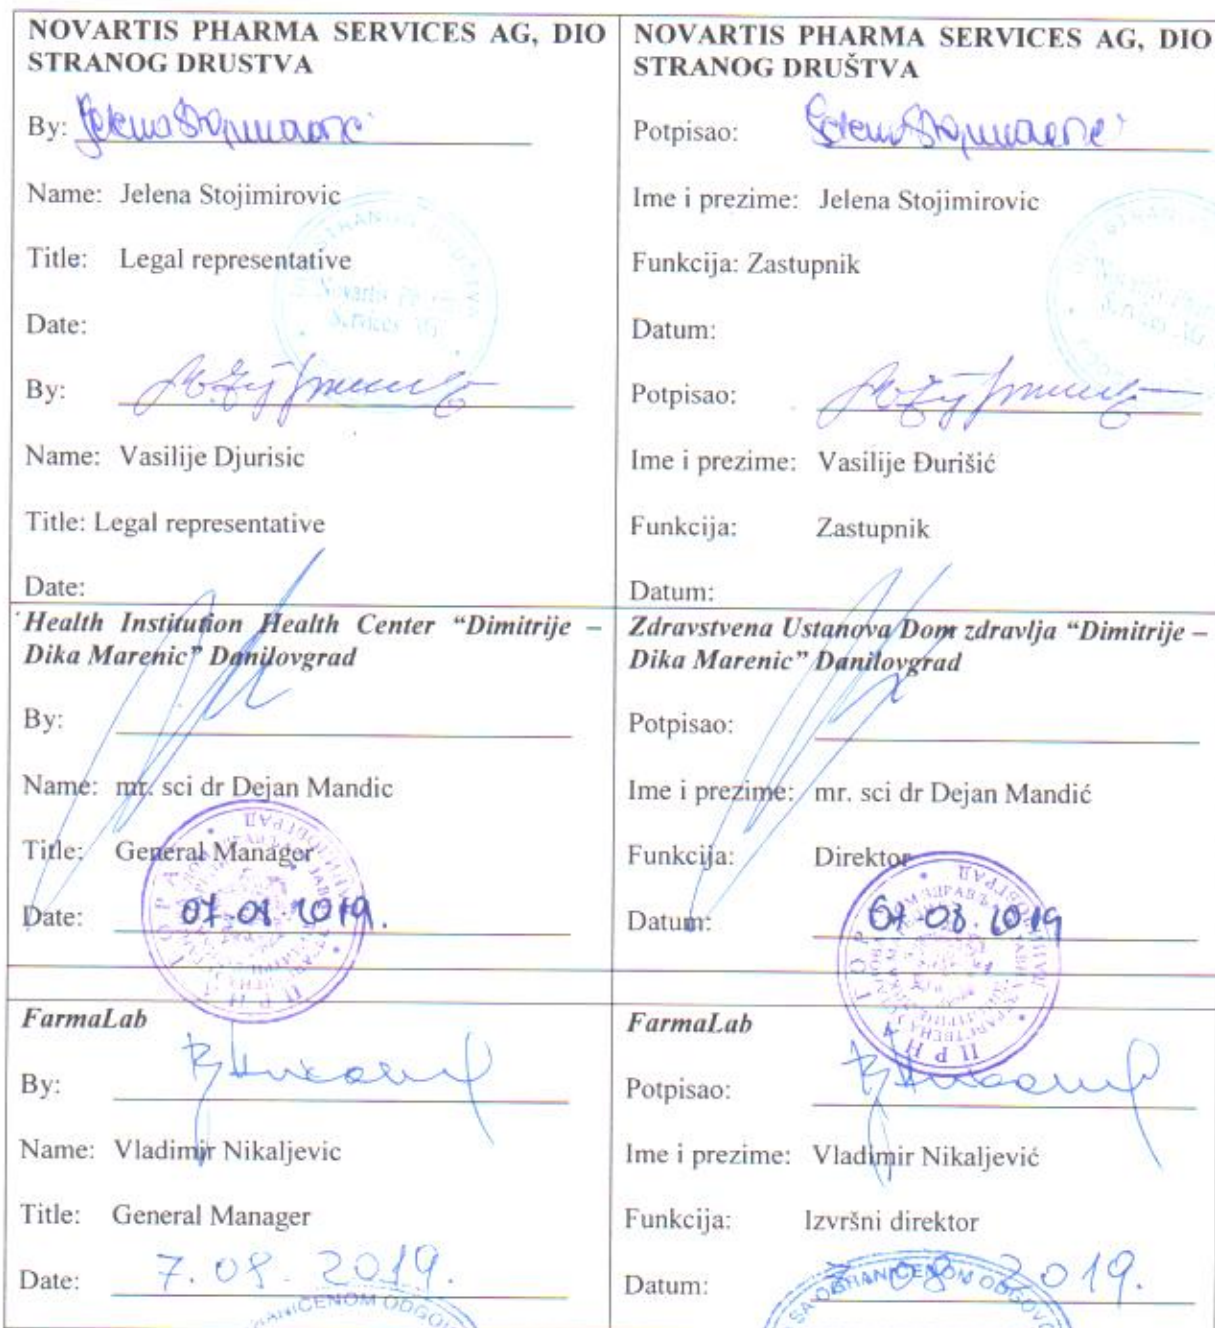 NOVARTIS PHARMA SERVICES AG, DIO
STRANOG DRUSTVA
By:
Name: Jelena Stojimirovic
Title: Legal representative
Date:
By:
Name: Vasilije Djurisic
Title: Legal representative
Date:
Health Institution Health Center “Dimitrije –
Dika Marenic” Danilovgrad
By:
Name: mr. sci dr Dejan Mandic
Title: General Manager
Date: 07.08.2019.
FarmaLab
By:
Name: Vladimir Nikaljevic
Title: General Manager
Date: 7.08.2019.
NOVARTIS PHARMA SERVICES AG, DIO
STRANOG DRUŠTVA
Potpisao:
Ime i prezime: Jelena Stojimirovic
Funkcija: Zastupnik
Datum:
Potpisao:
Ime i prezime: Vasilije Đurišić
Funkcija: Zastupnik
Datum:
Zdravstvena Ustanova Dom zdravlja “Dimitrije –
Dika Marenic” Danilovgrad
Potpisao:
Ime i prezime: mr. sci dr Dejan Mandić
Funkcija: Direktor
Datum: 07.08.2019
FarmaLab
Potpisao:
Ime i prezime: Vladimir Nikaljević
Funkcija: Izvršni direktor
Datum: 7.08.2019.